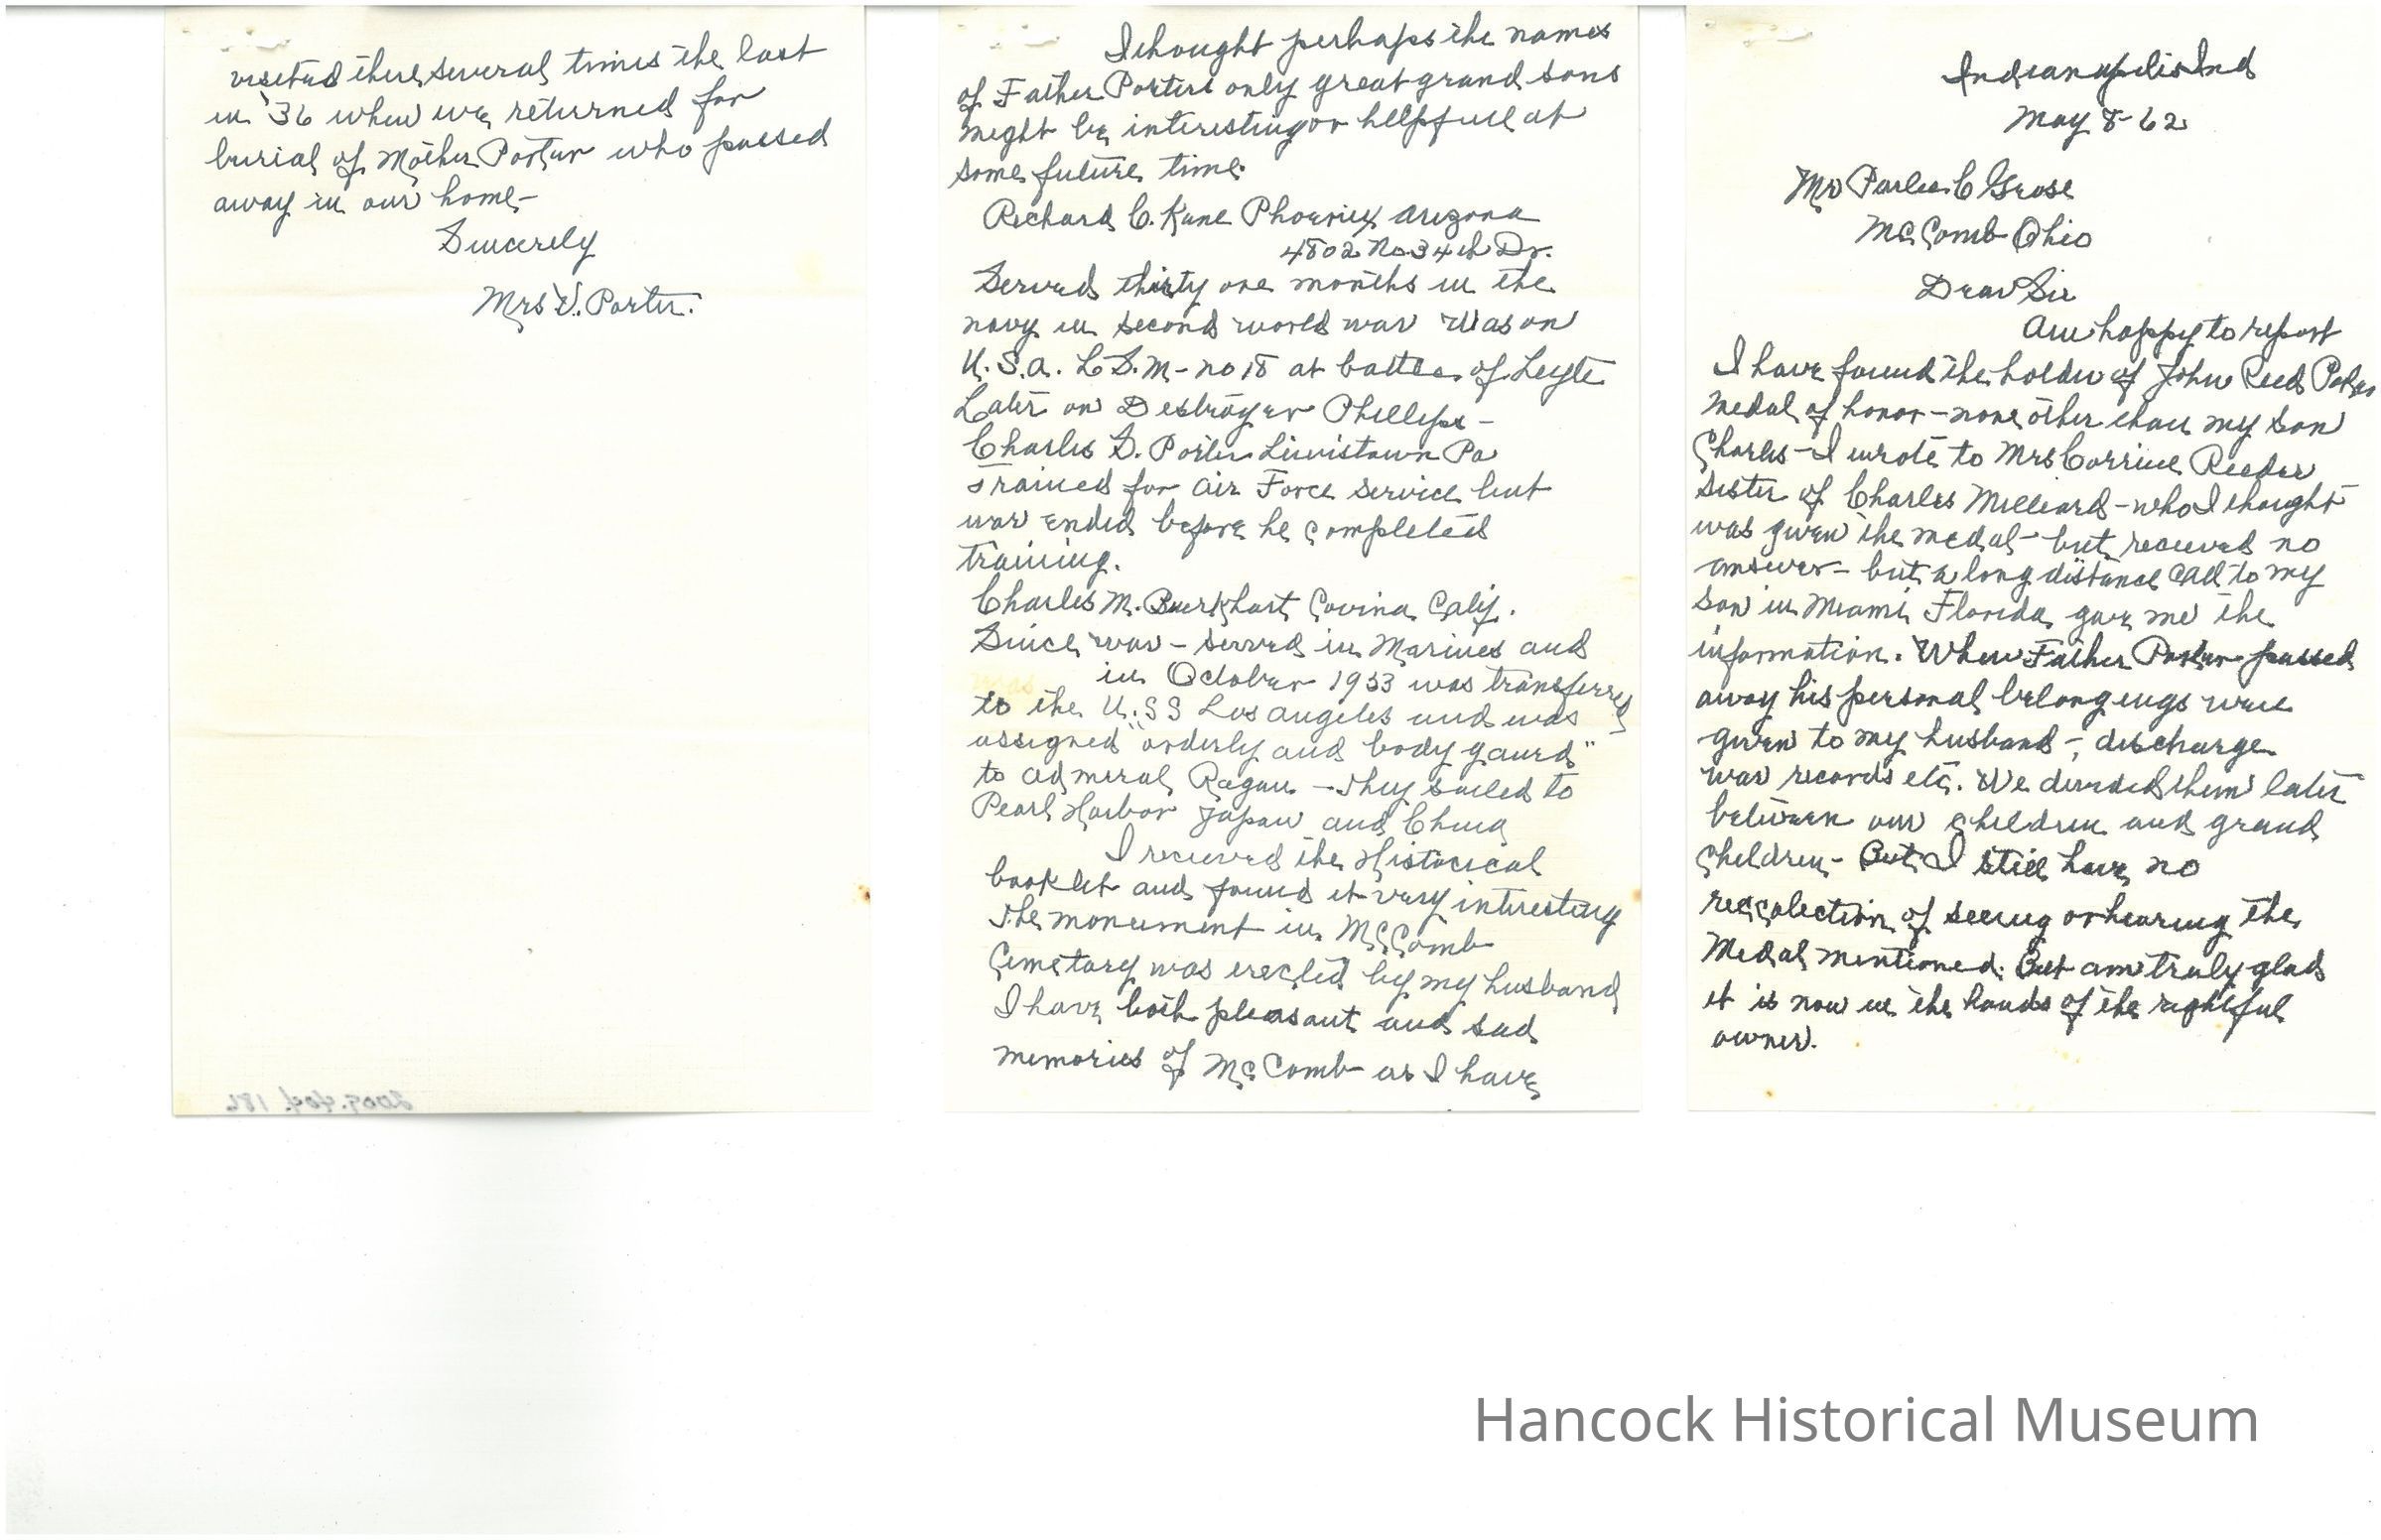 Indianapolis Ind
May 8-62
Mr Parlee C Grose
McComb Ohio
Dear Sir
Am happy to report
I have found the holder of John Reed Porter
medal of honor - none other than my son
Charles - I wrote to Mrs Corrine Reeder
sister of Charles Milliard - who I thought
was given the medal - but received no
answer - but a long distance call to my
son in Miami Florida gave me the
information. When Father Porter passed
away his personal belongings were
given to my husband -, discharge
war records etc. We divided them later
between our children and grand
children - But I still have no
reccolection of seeing or hearing the
Medal mentioned. But am truly glad
it is now in the hands of the rightful
owner.
I thought perhaps the names
of Father Porters only great grand sons
might be interesting or hellpfull at
some future time.
Richard C. Kane Phoenix Arizona
4802 No 34th Dr.
Served thirty one months in the
navy in second world war was on
U.S.A. L.S.M - no 18 at battle of Leyte
Later on Destroyer Phillips -
Charles S. Porter Lewistown Pa
Trained for Air Force service but
war ended before he completed
training.
Charles M. Buerkhart Covina Calif.
Since war - served in Marines and
in October 1953 was transferred
to the U.SS Los Angeles and was
assigned "orderly and body gaurd"
to admiral Ragan - They sailed to
Pearl Harbor Japan and China
I recieved the Historical
booklet and found it very interesting
The monument in McComb
Cemetary was erected by my husband
I have both pleasant and sad
memories of McComb as I have
visited there several times the last
in '36 when we returned for
burial of Mother Porter who passed
away in our home -
Sincerely
Mrs V. Porter.
2009.404.186
Hancock Historical Museum